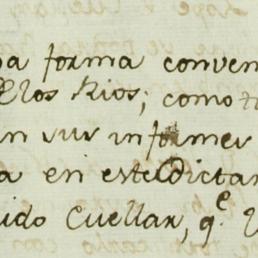 pa forma conven
e los Rios; como t
n sus informes
a en este dictan
ido Cuellar, q.e